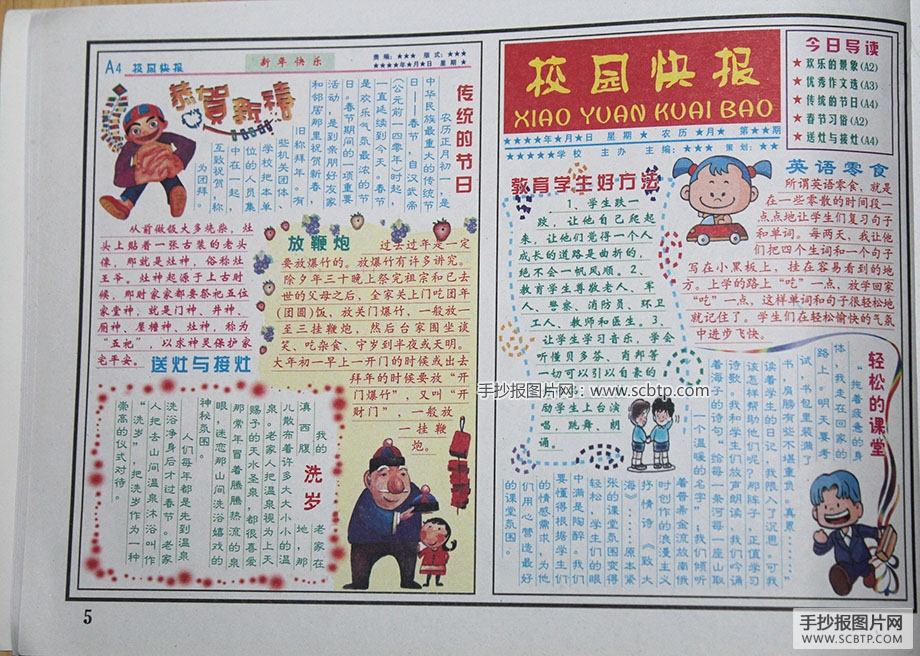 A4 校园快报
新年快乐
责编:★★★ 版式:★★★
★★★★年★月★日 星期 ★
恭贺新禧
传统的节日
农历正月初一,是
中华民族最重大的传统节
日——春节,自汉武帝
(公元前一四零年)时起,
一直延续到今天。春节
是欢乐气氛最浓的节
日。春节期间的一项重要
活动,是到亲朋好友家
和邻居那里祝贺新春,
旧称拜年。有
些机关团体、
学校把本单
位的人员集
中在一起,
互致祝贺,称
为团拜。
从前做饭大多烧柴,灶
头上贴着一张古装的老头
像,那就是灶神,俗称灶
王爷。灶神起源于上古时
候,那时家家都要祭祀五位
家堂神,就是门神、井神、
厕神、屋精神、灶神,称为
“五祀”,以求神灵保护家
宅平安。
送灶与接灶
放鞭炮
过去过年是一定
要放爆竹的。放爆竹有许多讲究。
除夕年三十晚上祭完祖宗和已去
世的父母之后,全家关上门吃团年
(团圆)饭,放关门爆竹,一般放一
至三挂鞭炮,然后台家围坐谈
笑、吃杂食、守岁到半夜或天明。
大年初一早上一开门的时候或出去
拜年的时候要放“开
门爆竹”,又叫“开
财门”,一般放
一挂鞭
炮。
洗岁
我的老家在
滇西腹地,那
儿散布着许多大大小小的温
泉。老家人把温泉视为上天
赐予的天水圣泉,都很喜爱
那常年冒着腾腾热流的泉
眼,迷恋那山间洗浴嬉戏的
神秘氛围。
人们每年都是先到温泉
洗浴净身后才过春节。老家
人把去山间温泉沐浴叫作
“洗岁”,把洗岁作为一种
崇高的仪式对待。
5
校园快报
XIAO YUAN KUAI BAO
今日导读
★ 欢乐的景象(A2)
★ 优秀作文选(A3)
★ 传统的节日(A4)
★ 春节习俗(A2)
★ 送灶与接灶(A4)
★★★★年★月★日 星期 ★ 农历 ★月★ 第★★期
★★★★★学校 主办 主编:★★★ 策划:★★
教育学生好方法
1、学生跌一
跌,让他自己爬起
来,让他们觉得一个人
成长的道路是曲折的,
绝不会一帆风顺。2、
教育学生尊敬老人、军
人、警察、消防员、环卫
工人、教师和医生。3、
让学生学习音乐,学会
听懂贝多芬、肖邦等
一切可以引以自豪的
励学生上台演
唱、跳舞、朗
诵。
英语零食
所谓英语零食,就是
在一些零散的时间段一
点点地让学生们复习句子
和单词。每两天,我让他
们把四个生词和一个句子
写在小黑板上,挂在容易看到的地
方。上学的路上“吃”一点,放学回家
“吃”一点,这样单词和句子很轻松地
就记住了。学生们在轻松愉快的气氛
中进步飞快。
轻松的课堂
“拖着疲惫的身
体,我走在回家的
路上。明天要考
试,书包里装满了
书,肩膀有些不堪重负……真累……”
读着学生的日记,我陷入了沉思。可我
该怎样帮助他们呢?那段时间,正值学习
诗歌。我和学生们放声朗读:我们吟诵
海子的诗句“给每一条河每一座山取
一个温暖的名字”;我们倾听
着普希金流放南俄
时创作的浪漫主义
抒情诗《致大
海》……原本紧
张的课堂氛围变得
轻松,学生们的眼
中满是陶醉。我们
要懂得根据学生们
的情感需求,为他
们用心营造最好
的课堂氛围。
手抄报图片网:www.scbtp.com
手抄报图片网
WWW.SCBTP.COM